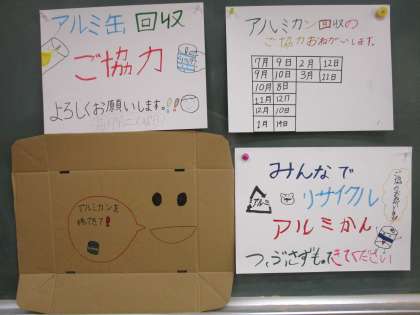 アルミ缶 回収
ご協力
よろしくお願いします。!!
アルミカン回収の
ご協力おねがいします。
7月 9日 2月 12日
9月 10日 3月 11日
10月 8日
11月 12日
12月 10日
1月 14日
アルミカンを
持ってきて!
みんなで
アルミ
リサイクル
アルミかん
つぶさずもってきてください